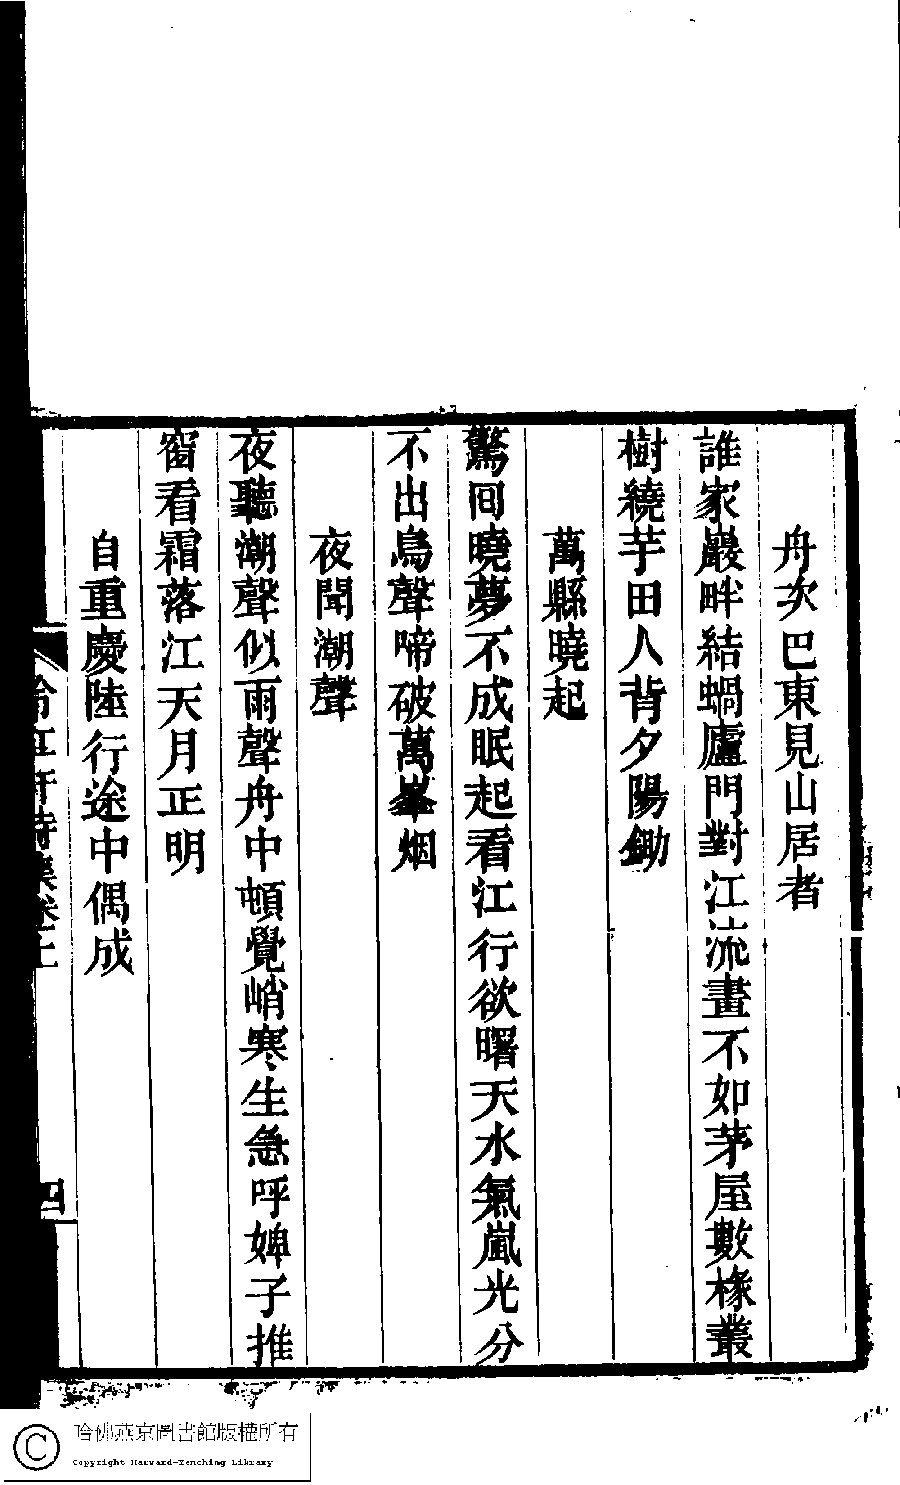 舟次巴東見山居者
誰家巖畔結蝸廬門對江流畫不如茅屋數椽叢
樹繞芋田人背夕陽鋤
萬縣曉起
驚囘曉夢不成眠起看江行欲曙天水氣嵐光分
不出鳥聲啼破萬峯烟
夜聞潮聲
夜聽潮聲似雨聲舟中頓覺峭寒生急呼婢子推
窗看霜落江天月正明
自重慶陸行途中偶成
詩集卷上
四
哈佛燕京圖書館版權所有
Copyright Harvard-Yenching Library